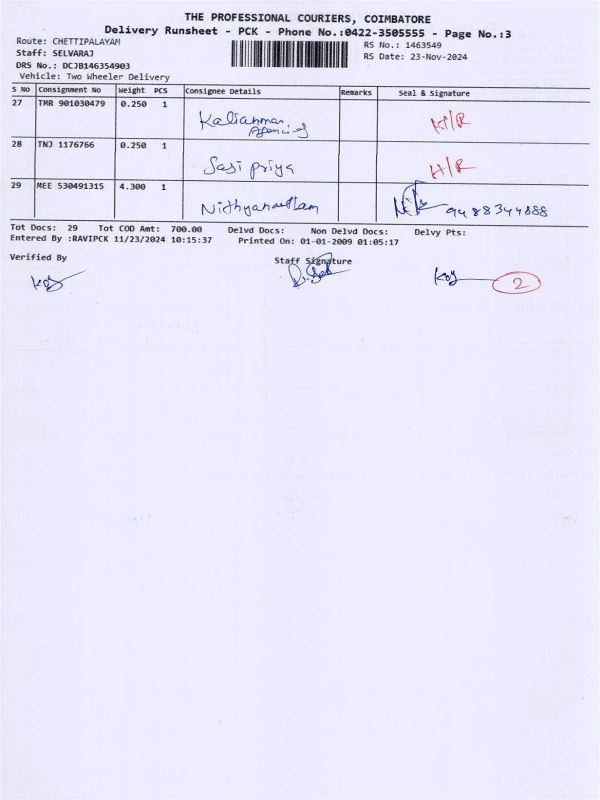 THE PROFESSIONAL COURIERS, COIMBATORE
Delivery Runsheet - PCK - Phone No.:0422-3505555 - Page No.:3
Route: CHETTIPALAYAM RS No.: 1463549
Staff: SELVARAJ RS Date: 23-Nov-2024
DRS No.: DCJB146354903
Vehicle: Two Wheeler Delivery
S No Consignment No Weight PCS Consignee Details Remarks Seal & Signature
27 TMR 901030479 0.250 1 Kaliamman Agencies
28 TNJ 1176766 0.250 1 Sasi priya H/R
29 MEE 530491315 4.300 1 Nithyanantham 9488344888
Tot Docs: 29 Tot COD Amt: 700.00 Delvd Docs: Non Delvd Docs: Delvy Pts:
Entered By :RAVIPCK 11/23/2024 10:15:37 Printed On: 01-01-2009 01:05:17
Verified By Staff Signature
2